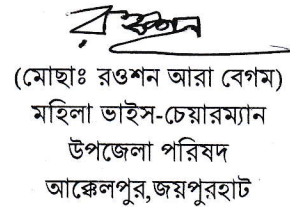 (মোছাঃ রওশন আরা বেগম)
মহিলা ভাইস-চেয়ারম্যান
উপজেলা পরিষদ
আক্কেলপুর,জয়পুরহাট